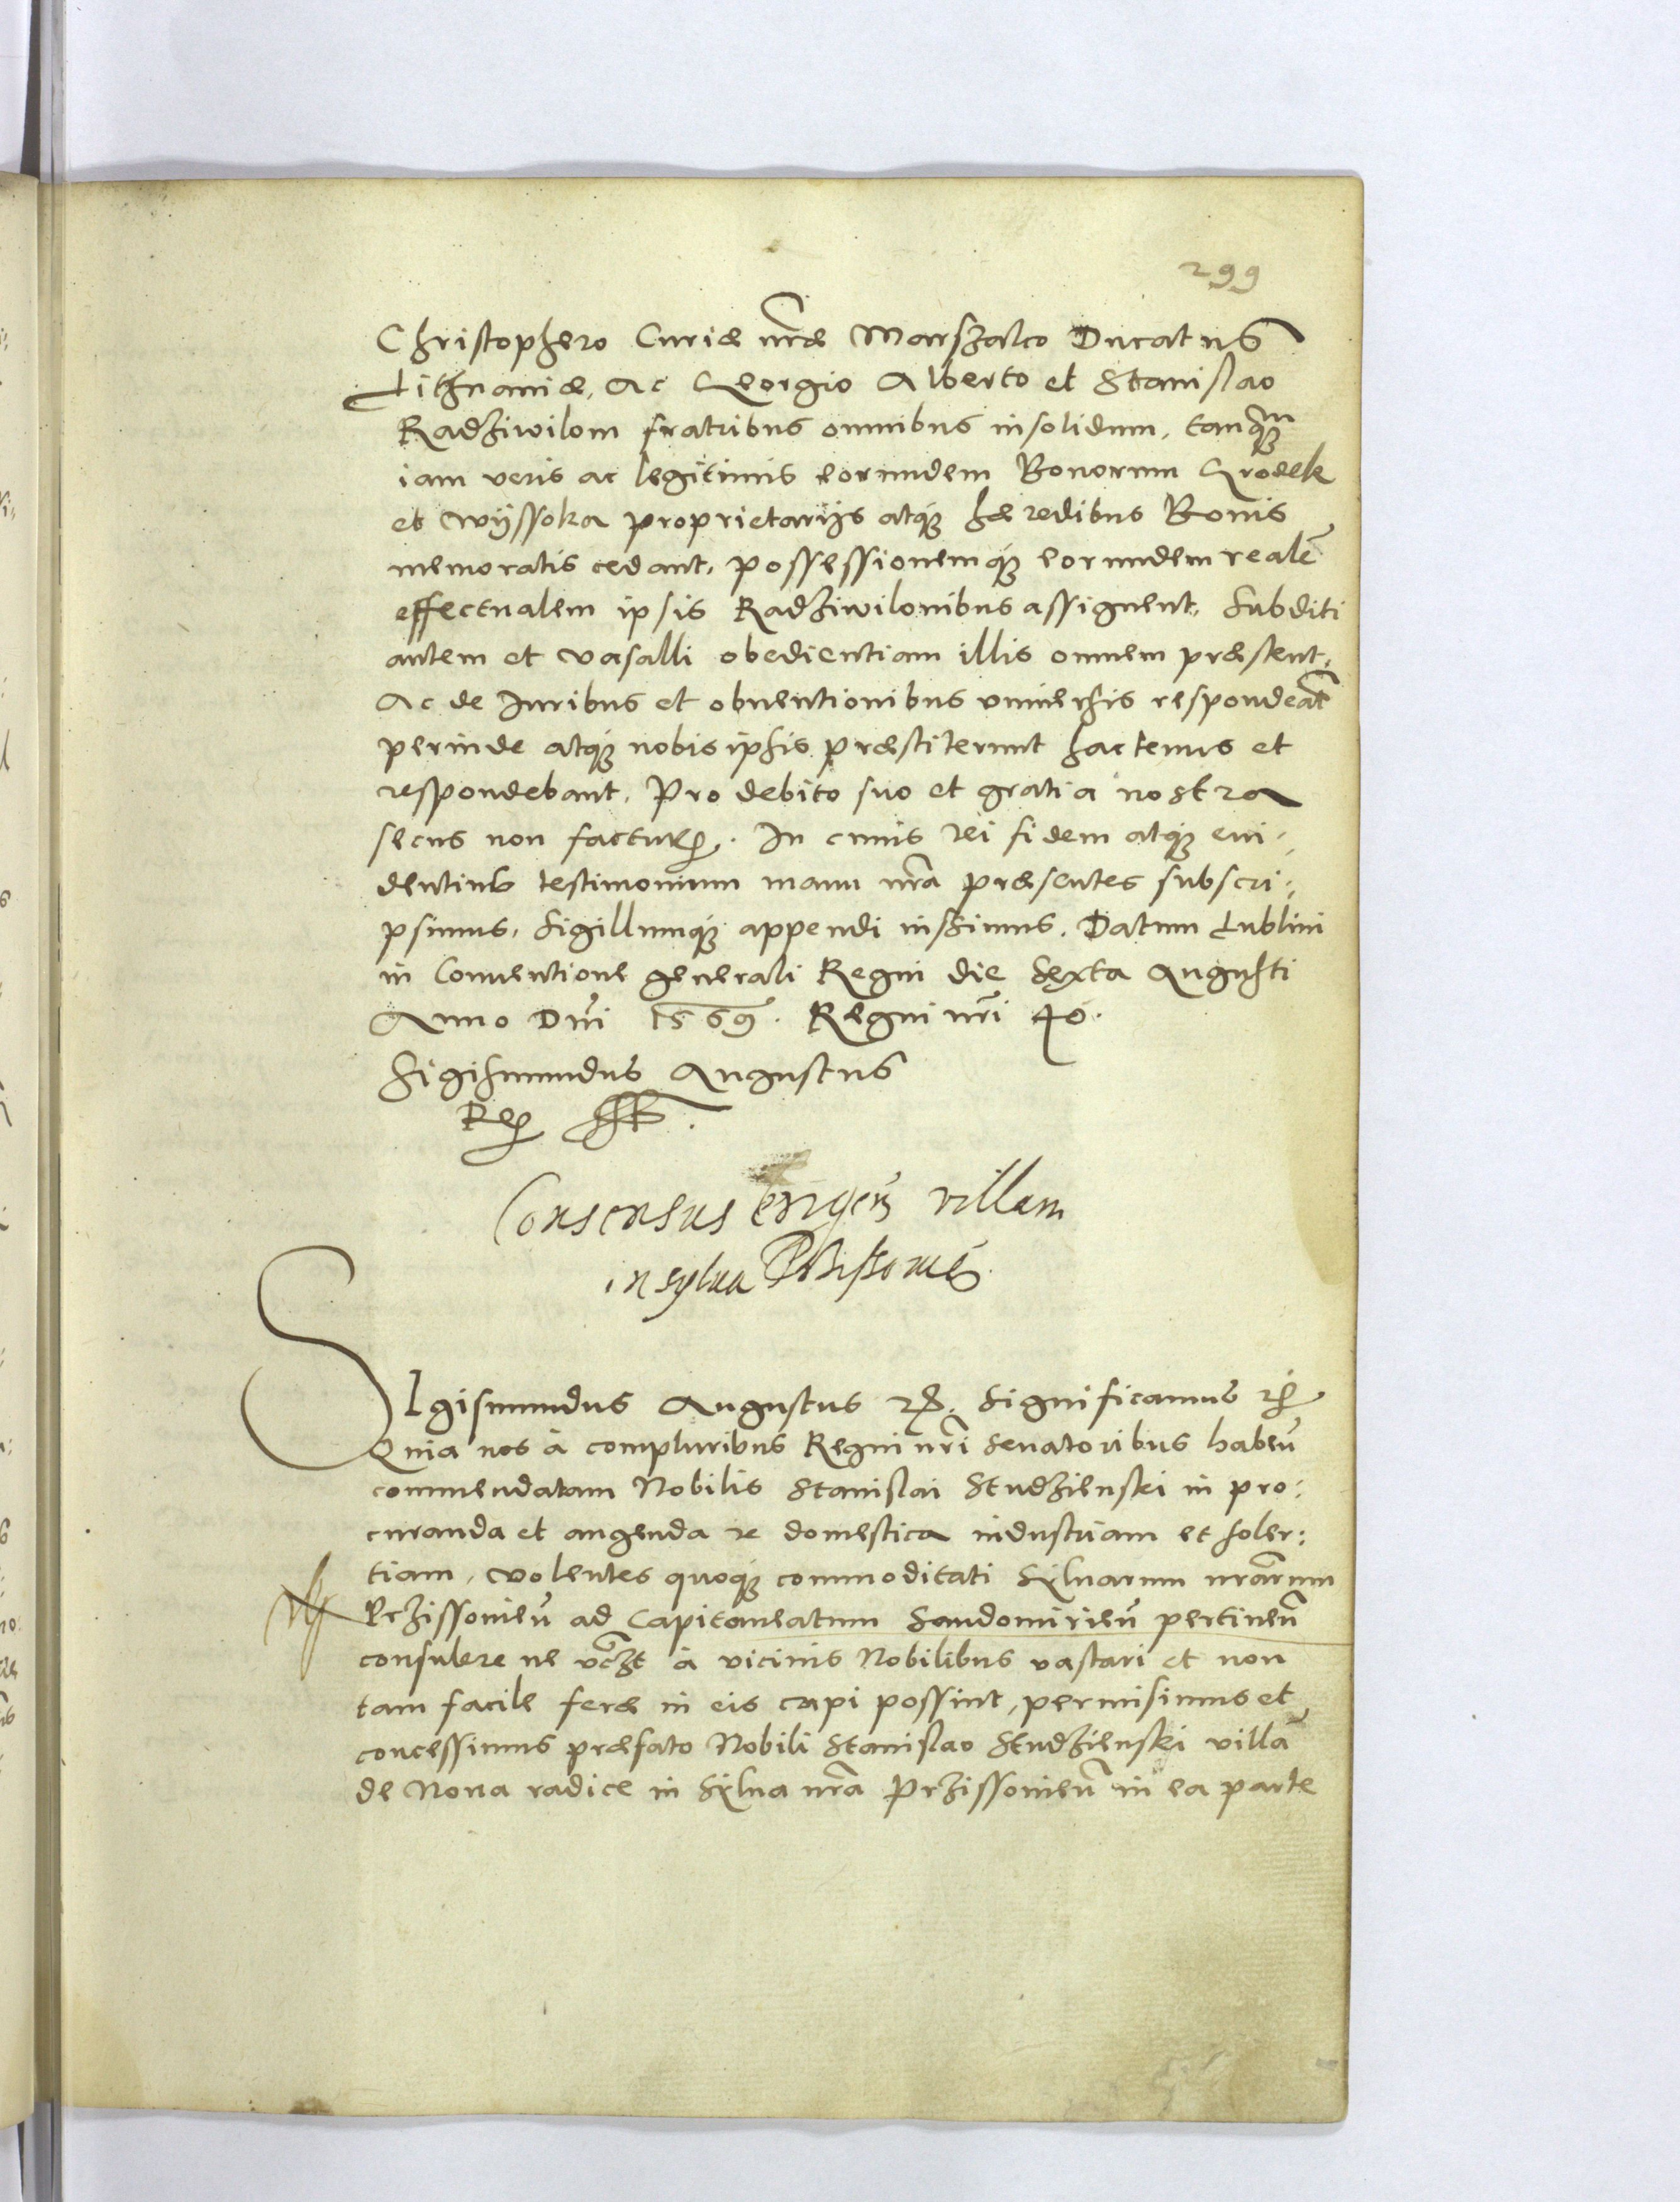 299
Christophero Curiæ nr̃æ Marszalco Ducatus
Lithuaniæ, Ac Georgio Alberto et Stanislao
Radziwilom fratribus omnibus insolidum, tanq̃m
iam veris ac legitimis eorundem Bonorum Grodek
et Wÿssoka proprietarijs atq́ꝫ hæredibus Bonis
memoratis cedant, possessionemq́ꝫ eorundem realẽ
effectualem ipsis Radziwilonibus assignent, Subditi
autem et vasalli obedientiam illis omnem præstent,
Ac de Iuribus et obuentionibus vniuersis respondeãt
perinde atq́ꝫ nobis ipsis præstiterunt hactenus et
respondebant, Pro debito suo et gratia nostra
secus non facturꝶ. In cuius rei fidem atq́ꝫ eui-
dentius testimonium manu nr̃a præsentes subscri-
psimus, Sigillumq́ꝫ appendi iussimus. Datum Lublini
in Conuentione generali Regni die Sexta Augusti
Anno Dñi 1569. Regni nr̃i 40.
Sigismundus Augustus
Rex
Consensus erigeñ villam
in sylua
SIgismundus Augustus ꝛc. Significamus ꝛc
Quia nos à compluribus Regni nr̃i Senatoribus habeñ
commendatam Nobilis Stanislai Studzienski in pro:
curanda et augenda re domestica industriam et soler:
tiam, volentes quoq́ꝫ commoditati Sÿluarum nr̃arum
Przissonieñ ad Capitaneatum Sandomirieñ pertineñ
consulere ne à vicinis Nobilibus vastari et non
tam facile feræ in eis capi possint, permisimus et
concessimus præfato Nobili Stanislao Studzienski villã
de Noua radice in Sÿlua nr̃a Przissonieñ in ea parte